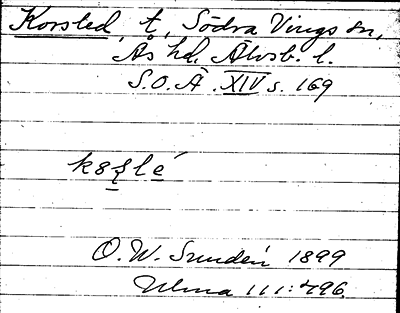 Korsled, t., Södra Vings sn,
Ås hd. Älvsb. l.
S.O.Ä. XIV s. 169
O.W. Sundén 1899
Ulma 111:496.